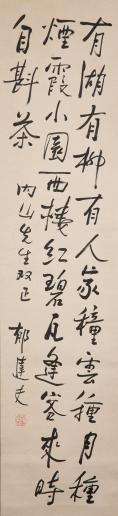 有湖有柳有人家種雲種月種
煙霞小園西樓紅碧瓦逢客來時
自斟茶
内山先生双正
郁達夫